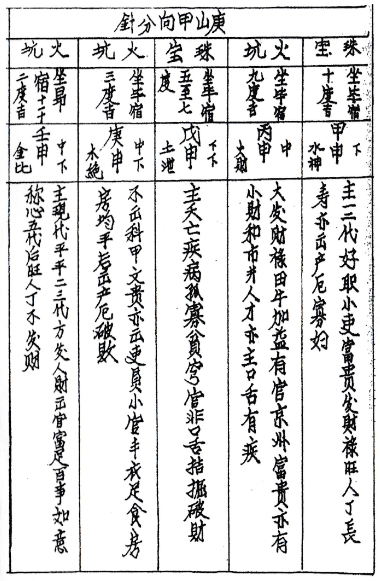 庚山甲向分針
珠宝
坐毕宿
十度吉
甲申
下
水神
主二代好职小吏富贵发財禄旺人丁長
寿亦出产厄寡妇
火坑
坐毕宿
九度吉
丙申
中
火財
大发財禄田牛加益有官京州富贵亦有
小財和市井人才亦主口舌有疾
珠宝
坐毕宿
五至七
度
戊申
下下
土泄
主夭亡疾病孤寡貧穷官非口舌拮掘破財
火坑
坐毕宿
三度吉
庚申
中下
木絶
不出科甲文贵亦云吏員小官丰衣足食房
房均平后出产厄破敗
火坑
坐昴
宿十一
二度吉
壬申
中下
金比
主現代平平二三代方发人財出官富足百事如意
称心五代后旺人丁不发财